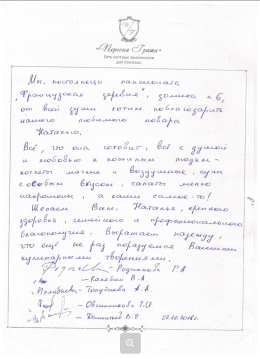 «Персона Грата»
Сеть частных пансионатов
для пожилых
Мы, постояльцы пансионата
„Французская деревня", домика №6,
от всей души хотим поблагодарить
нашего любимого повара
Наталью.
Всё, что она готовит, всё с душой
и любовью к пожилым людям-
котлеты мягкие и воздушные, супы
с особым вкусом, салаты мелко
накрошены, а каши самое-то!
Желаем Вам, Наталья, крепкого
здоровья, семейного и профессионального
благополучия. Выражаем надежду,
что ещё не раз порадуемся Вашими
кулинарными творениями.
Родионова Г.А
В.А.
А.А.
Овчинникова
В.С. 22.10.2018г.